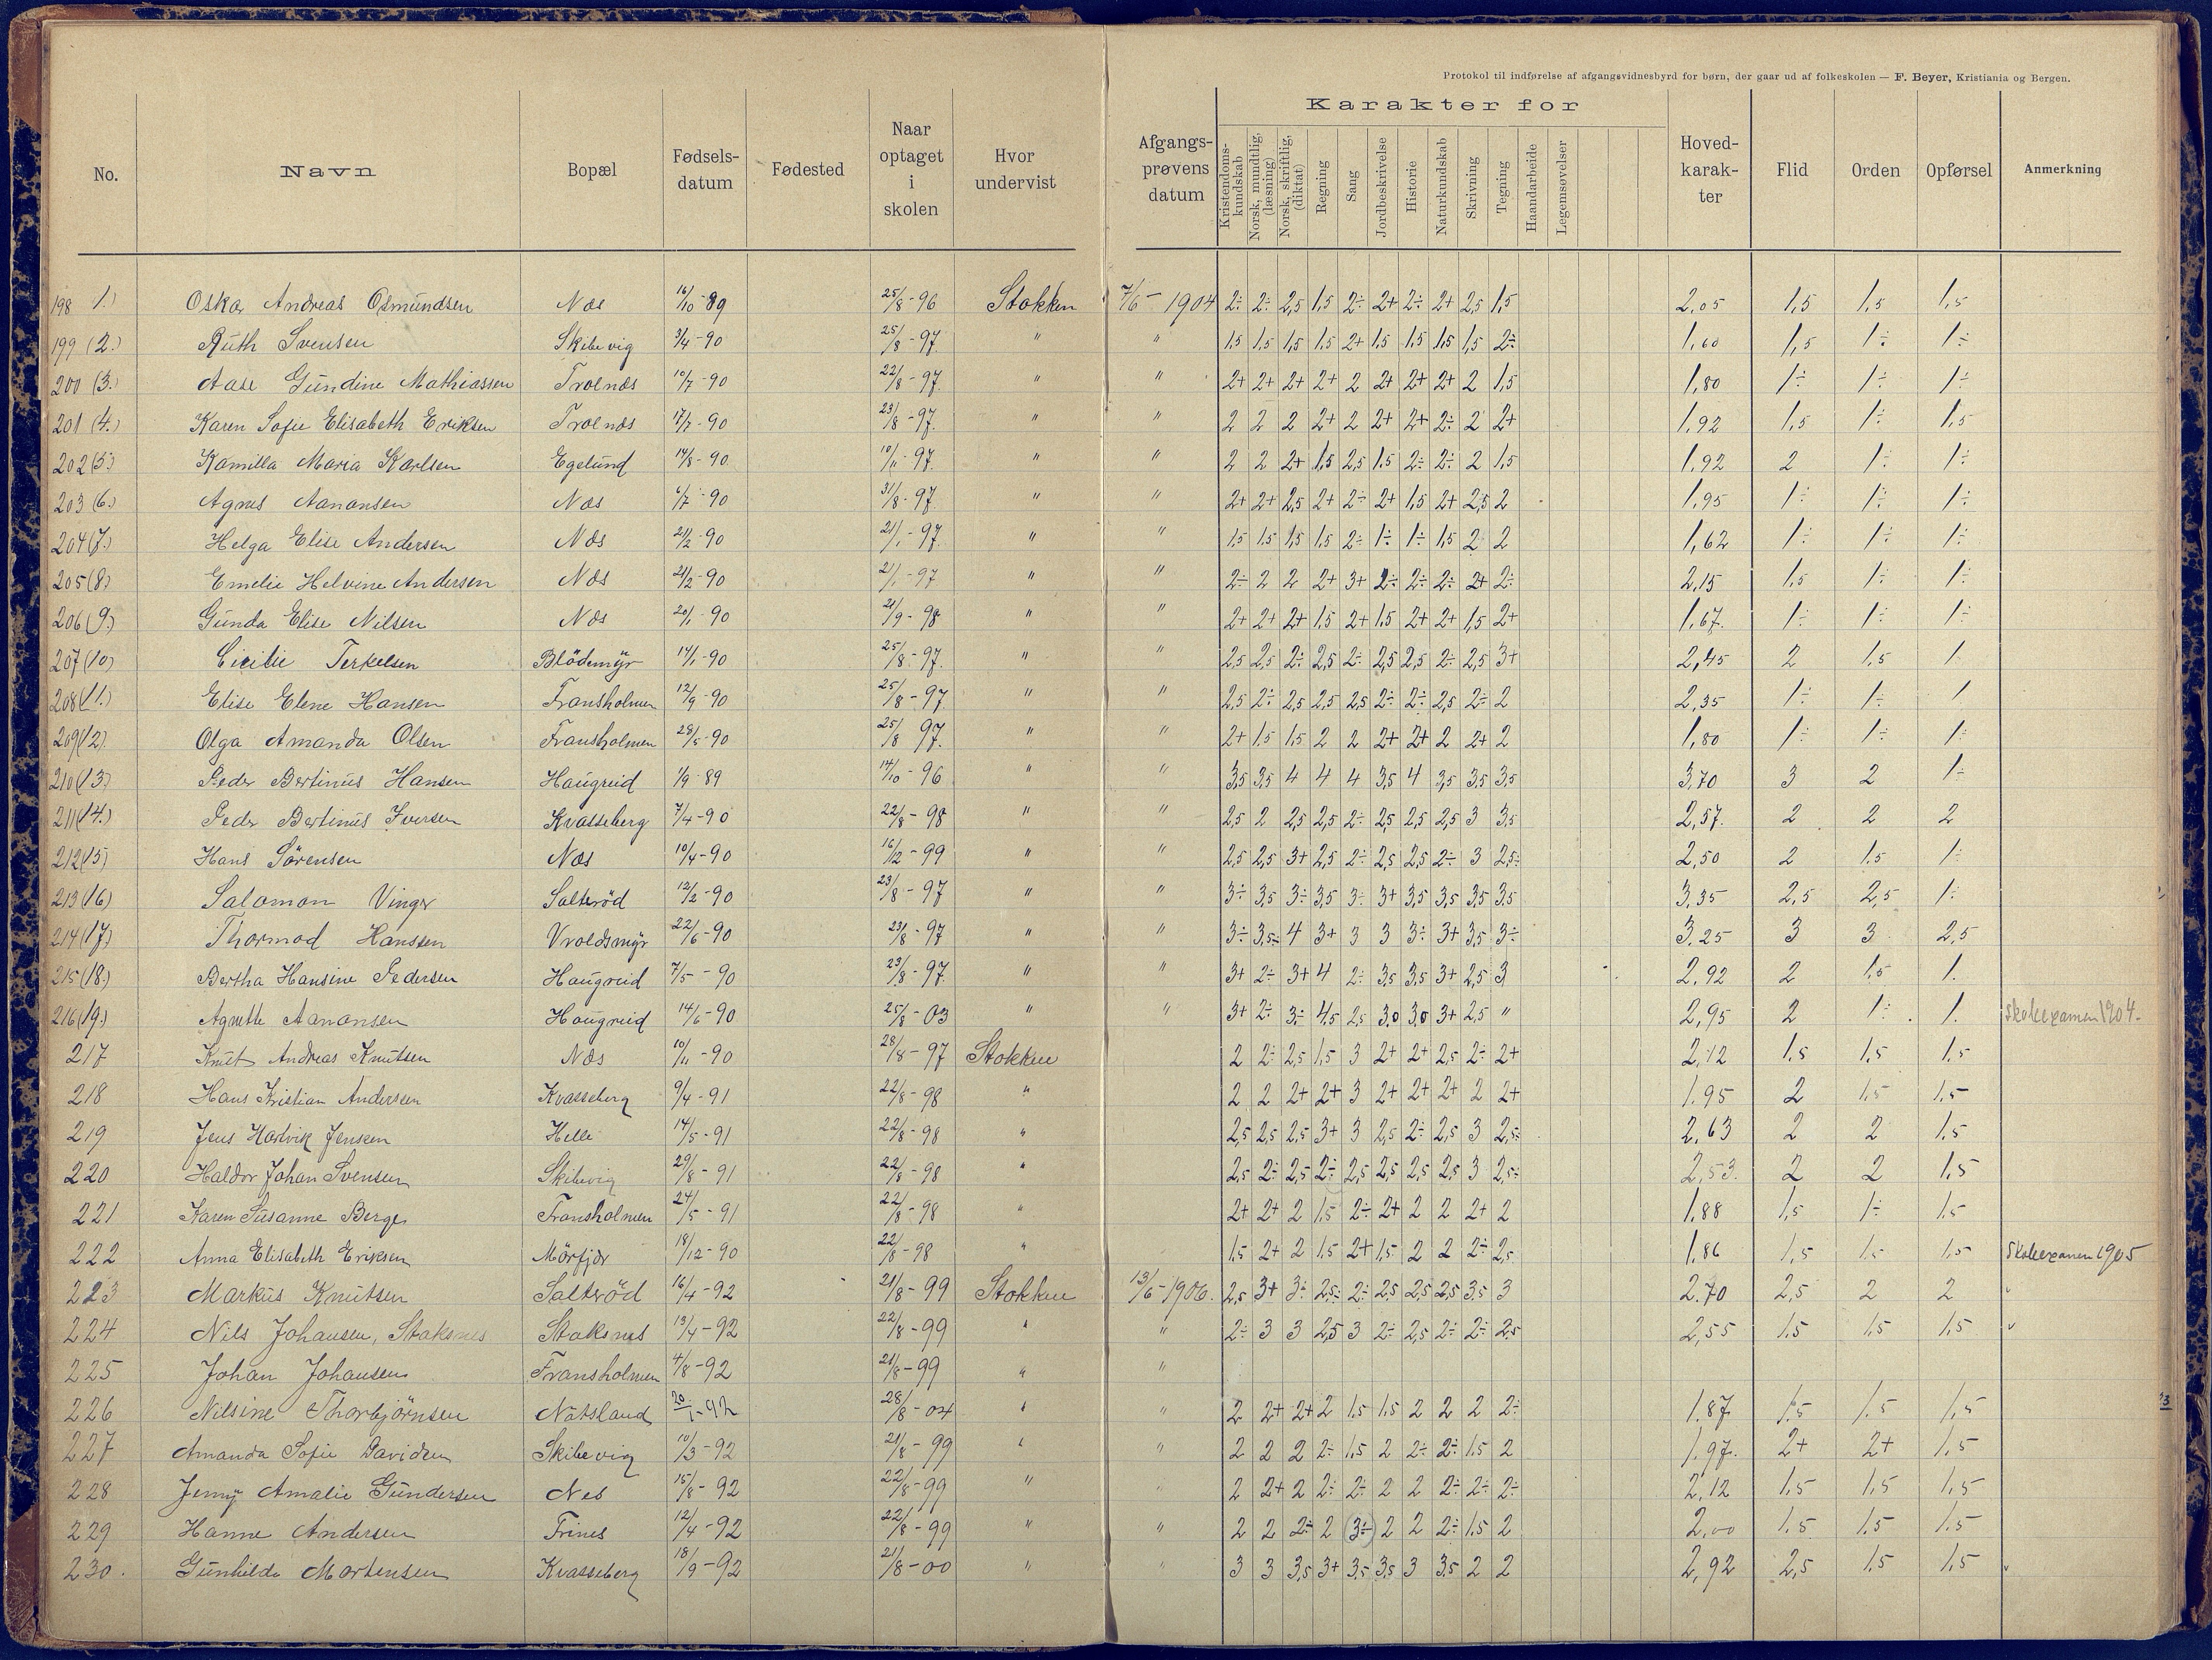 Protokol til indførelse af afgangsvidnesbyrd for børn, der gaar ud af folkeskolen — F. Beyer, Kristiania og Bergen.
No. Navn Bopæl Fødsels-datum Fødested Naar optaget i skolen Hvor undervist Afgangs-prøvens datum Karakter for Kristendoms-kundskab Norsk, mundtlig, (læsning) Norsk, skriftlig, (diktat) Regning Sang Jordbeskrivelse Historie Naturkundskab Skrivning Tegning Haandarbeide Legemsøvelser Hoved-karak-ter Flid Orden Opførsel Anmerkning
198 1.) Oskar Andreas Osmundsen Næs 16/10-89 25/8-96 Stokken 7/6-1904 2÷ 2÷ 2,5 1,5 2÷ 2+ 2÷ 2+ 2,5 1,5 2,05 1,5 1,5 1,5
199 (2.) Ruth Svensen Skibevig 3/4-90 25/8-97. " " 1,5 1,5 1,5 1,5 2+ 1,5 1,5 1,5 1,5 2÷ 1,60 1,5 1÷ 1÷
200 (3.) Aase Gundine Mathiassen Trolnæs 10/7-90 22/8-97. " " 2+ 2+ 2+ 2+ 2 2+ 2+ 2+ 2 1,5 1,80 1÷ 1÷ 1÷
201 (4.) Karen Sofie Elisabeth Eriksen Trolnæs 17/7-90 23/8-97. " " 2 2 2 2+ 2 2+ 2+ 2÷ 2 2+ 1,92 1,5 1÷ 1,5
202 (5.) Kamilla Maria Karlsen Egelund 14/8-90 10/11-97. " " 2 2 2+ 1,5 2,5 1,5 2÷ 2÷ 2 1,5 1,92 2 1÷ 1÷
203 (6.) Agnes Aanonsen Næs 6/7-90 31/8-97. " " 2+ 2+ 2,5 2+ 2÷ 2+ 1,5 2+ 2,5 2 1,95 1÷ 1÷ 1÷
204 (7.) Helga Elise Andersen Næs 21/2-90 21/1-97. " " 1,5 1,5 1,5 1,5 2÷ 1÷ 1÷ 1,5 2 2 1,62 1÷ 1÷ 1÷
205 (8.) Emelie Helvine Andersen Næs 21/2-90 21/1-97 " " 2÷ 2 2 2+ 3+ 2÷ 2÷ 2÷ 2+ 2÷ 2,15 1,5 1÷ 1÷
206 (9.) Gunda Elise Nilsen Næs 20/1-90 21/9-98 " " 2+ 2+ 2+ 1,5 2+ 1,5 2+ 2+ 1,5 2+ 1,67. 1÷ 1÷ 1÷
207 (10) Cicilie Terkelsen Blödemÿr 14/1-90 25/8-97. " " 2,5 2,5 2÷ 2,5 2÷ 2,5 2,5 2÷ 2,5 3+ 2,45 2 1,5 1
208 (11.) Elise Elene Hansen Fransholmen 12/9-90 25/8-97. " " 2,5 2÷ 2,5 2,5 2,5 2÷ 2÷ 2,5 2÷ 2 2,35 1÷ 1÷ 1
209 (12). Olga Amanda Olsen Fransholmen 28/5-90 25/8 97. " " 2+ 1,5 1,5 2 2 2+ 2+ 2 2+ 2 1,80 1÷ 1÷ 1÷
210 (13.) Peder Bertinus Hansen Haugreid 1/9-89 14/10-96 " " 3,5 3,5 4 4 4 3,5 4 3,5 3,5 3,5 3,70 3 2 1÷
211 (14.) Peder Bertinus Iversen Kvasseberg 7/4-90 22/8-98 " " 2,5 2 2,5 2,5 2÷ 2,5 2,5 2,5 3 3,5 2,57. 2 2 2
212 (15) Hans Sörensen Næs 10/4-90 16/2-99 " " 2,5 2,5 3+ 2,5 2÷ 2,5 2,5 2÷ 3 2,5÷ 2,50 2 1,5 1÷
213 (16) Salomon Vinger Salteröd 12/2-90 23/8-97 " " 3÷ 3,5 3÷ 3,5 3÷ 3+ 3,5 3,5 3,5 3,5 3,35 2,5 2,5 1÷
214 (17.) Thormod Hanssen Vroldsmÿr 22/6-90 23/8-97 " " 3÷ 3,5÷ 4 3+ 3 3 3÷ 3+ 3,5 3÷ 3,25 3 3 2,5
215 (18.) Bertha Hansine Pedersen Haugreid 7/5-90 23/8-97. " " 3+ 2÷ 3+ 4 2÷ 3,5 3,5 3+ 2,5 3 2,92 2 1,5 1.
216 (19.) Agnethe Aanonsen Haugreid 14/6-90 25/8-03 " " 3+ 2÷ 3÷ 4,5 2,5 3,0 3,0 3+ 2,5 " 2,95 2 1÷ 1. Skoleexamen 1904.
217 Knut Andreas Knutsen Næs 10/11-90 28/8-97 Stokken 2 2÷ 2,5 1,5 3 2+ 2+ 2,5 2÷ 2+ 2,12 1,5 1,5 1,5
218 Hans Kristian Andersen Kvasseberg 9/4-91 22/8-98 " 2 2 2+ 2+ 3 2+ 2+ 2+ 2 2+ 1.95 2 1,5 1,5
219 Jens Hartvik Jensen Helle 14/5-91 22/8-98 " 2,5 2,5 2,5 3+ 3 2,5 2÷ 2,5 3 2,5÷ 2,63 2 2 1,5
220 Haldor Johan Svensen Skibevig 29/8-91 22/8-98 " 2,5 2÷ 2,5 2÷ 2,5 2,5 2,5 2,5 3 2,5÷ 2,53. 2 2 1,5
221 Karen Susanne Berge Fransholmen 24/5-91 22/8-98 " 2+ 2+ 2 1,5 2÷ 2+ 2 2 2+ 2 1,88 1,5 1÷ 1,5
222 Anna Elisabeth Eriksen Mörfjær 18/12-90 22/8-98 " 1,5 2+ 2 1,5 2+ 1,5 2 2 2÷ 2,5 1,86 1,5 1,5 1,5 Skoleexamen 1905
223 Markus Knutsen Salteröd 16/4-92 21/8-99 Stokken 13/6-1906. 2,5 3+ 3÷ 2,5÷ 2÷ 2,5 2,5 2,5 3,5 3 2.70 2,5 2 2
224 Nils Johansen, Staksnes Staksnes 13/4-92 22/8-99 " " 2÷ 3 3 2,5 3 2÷ 2,5 2÷ 2÷ 2,5 2,55 1,5 1,5 1,5
225 Johan Johansen Fransholmen 4/8-92 21/8-99 " "
226 Nilsine Thorbjörnsen Nätsland 20/1-92 28/8-04 " " 2 2+ 2+ 2 1,5 1,5 2 2 2 2÷ 1.87 1,5 1,5 1,5
227 Amanda Sofie Davidsen Skibevig 10/3-92 21/8-99 " " 2 2 2 2÷ 1,5 2 2÷ 2÷ 1,5 2 1,97. 2+ 2+ 1,5
228 Jenny Amalie Gundersen Nes 15/8-92 22/8-99 " " 2 2+ 2 2÷ 2÷ 2 2 2÷ 2÷ 2÷ 2,12 1,5 1,5 1,5
229 Hanne Andersen Trines 12/4-92 22/8-99 " " 2 2 2÷ 2 (3÷) 2 2 2÷ 1,5 2 2,00 1,5 1,5 1,5
230. Gunhilde Mortensen Kvasseberg 18/9-92 21/8-00 " " 3 3 3,5 3+ 3,5 3,5 3 3,5 2 2 2,92 2,5 1,5 1,5